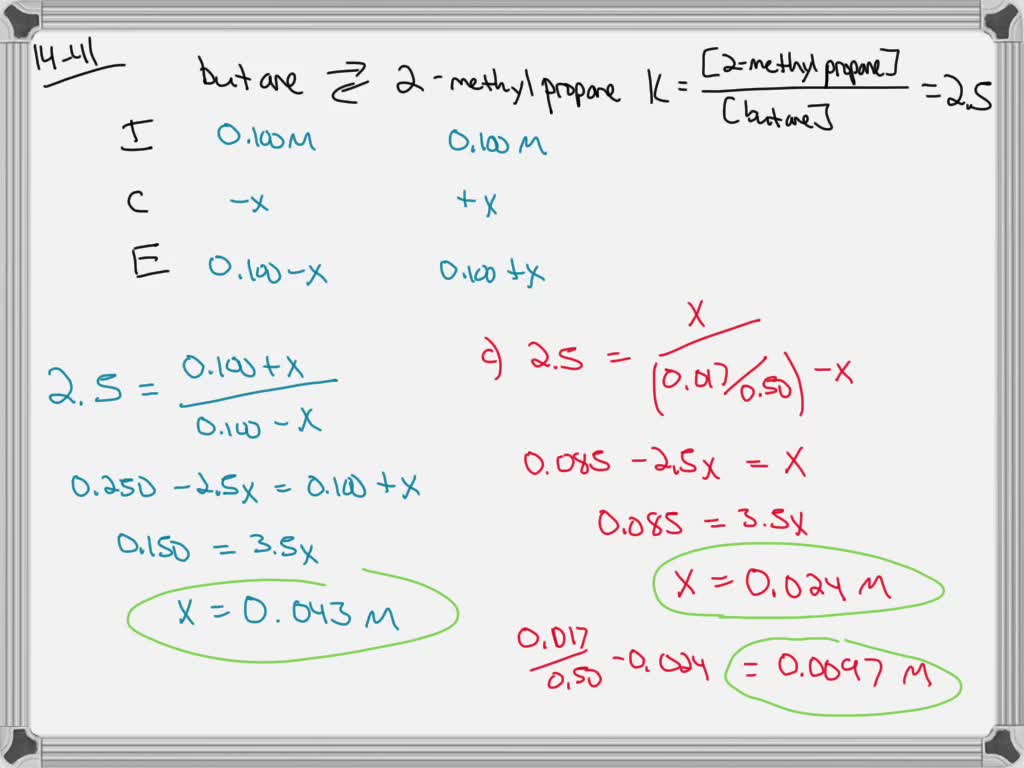 14-41
butane ⇌ 2-methyl propane K = [2-methyl propane] / [butane] = 2.5
I 0.100M 0.100M
C -x +x
E 0.100-x 0.100+x
2.5 = 0.100+x / 0.100-x
0.250 - 2.5x = 0.100 + x
0.150 = 3.5x
x = 0.043 M
c) 2.5 = x / (0.017/0.50) - x
0.085 - 2.5x = x
0.085 = 3.5x
x = 0.024 M
0.017 / 0.50 - 0.024 = 0.0097 M